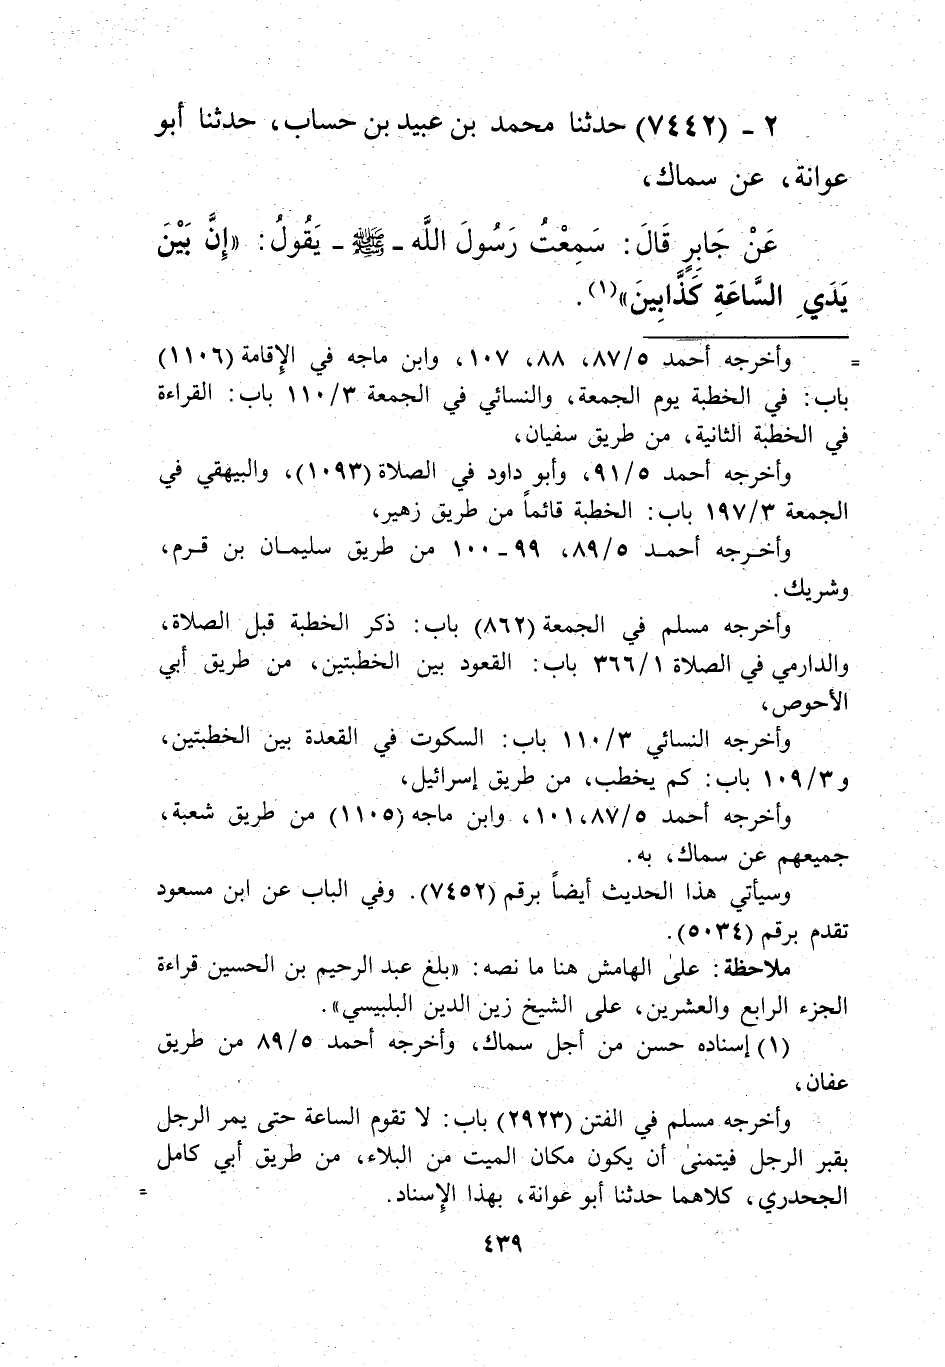 ٢ ـ (٧٤٤٢) حدثنا محمد بن عبيد بن حساب، حدثنا أبو
عوانة، عن سماك،
عَنْ جَابِرٍ قَالَ: سَمِعْتُ رَسُولَ اللَّه ـ ﷺ ـ يَقُولُ: «إِنَّ بَيْنَ
يَدَيِ السَّاعَةِ كَذَّابِينَ»(١).
= وأخرجه أحمد ٨٧/٥، ٨٨، ١٠٧، وابن ماجه في الإِقامة (١١٠٦)
باب: في الخطبة يوم الجمعة، والنسائي في الجمعة ١١٠/٣ باب: القراءة
في الخطبة الثانية، من طريق سفيان،
وأخرجه أحمد ٩١/٥، وأبو داود في الصلاة (١٠٩٣)، والبيهقي في
الجمعة ١٩٧/٣ باب: الخطبة قائماً من طريق زهير،
وأخرجه أحمد ٨٩/٥، ٩٩ ـ ١٠٠ من طريق سليمان بن قرم،
وشريك.
وأخرجه مسلم في الجمعة (٨٦٢) باب: ذكر الخطبة قبل الصلاة،
والدارمي في الصلاة ٣٦٦/١ باب: القعود بين الخطبتين، من طريق أبي
الأحوص،
وأخرجه النسائي ١١٠/٣ باب: السكوت في القعدة بين الخطبتين،
و ١٠٩/٣ باب: كم يخطب، من طريق إسرائيل،
وأخرجه أحمد ٨٧/٥، ١٠١، وابن ماجه (١١٠٥) من طريق شعبة،
جميعهم عن سماك، به.
وسيأتي هذا الحديث أيضاً برقم (٧٤٥٢). وفي الباب عن ابن مسعود
تقدم برقم (٥٠٣٤).
ملاحظة: علىٰ الهامش هنا ما نصه: «بلغ عبد الرحيم بن الحسين قراءة
الجزء الرابع والعشرين، على الشيخ زين الدين البلبيسي».
(١) إسناده حسن من أجل سماك، وأخرجه أحمد ٨٩/٥ من طريق
عفان،
وأخرجه مسلم في الفتن (٢٩٢٣) باب: لا تقوم الساعة حتى يمر الرجل
بقبر الرجل فيتمنىٰ أن يكون مكان الميت من البلاء، من طريق أبي كامل
الجحدري، كلاهما حدثنا أبو عوانة، بهذا الإِسناد. =
٤٣٩